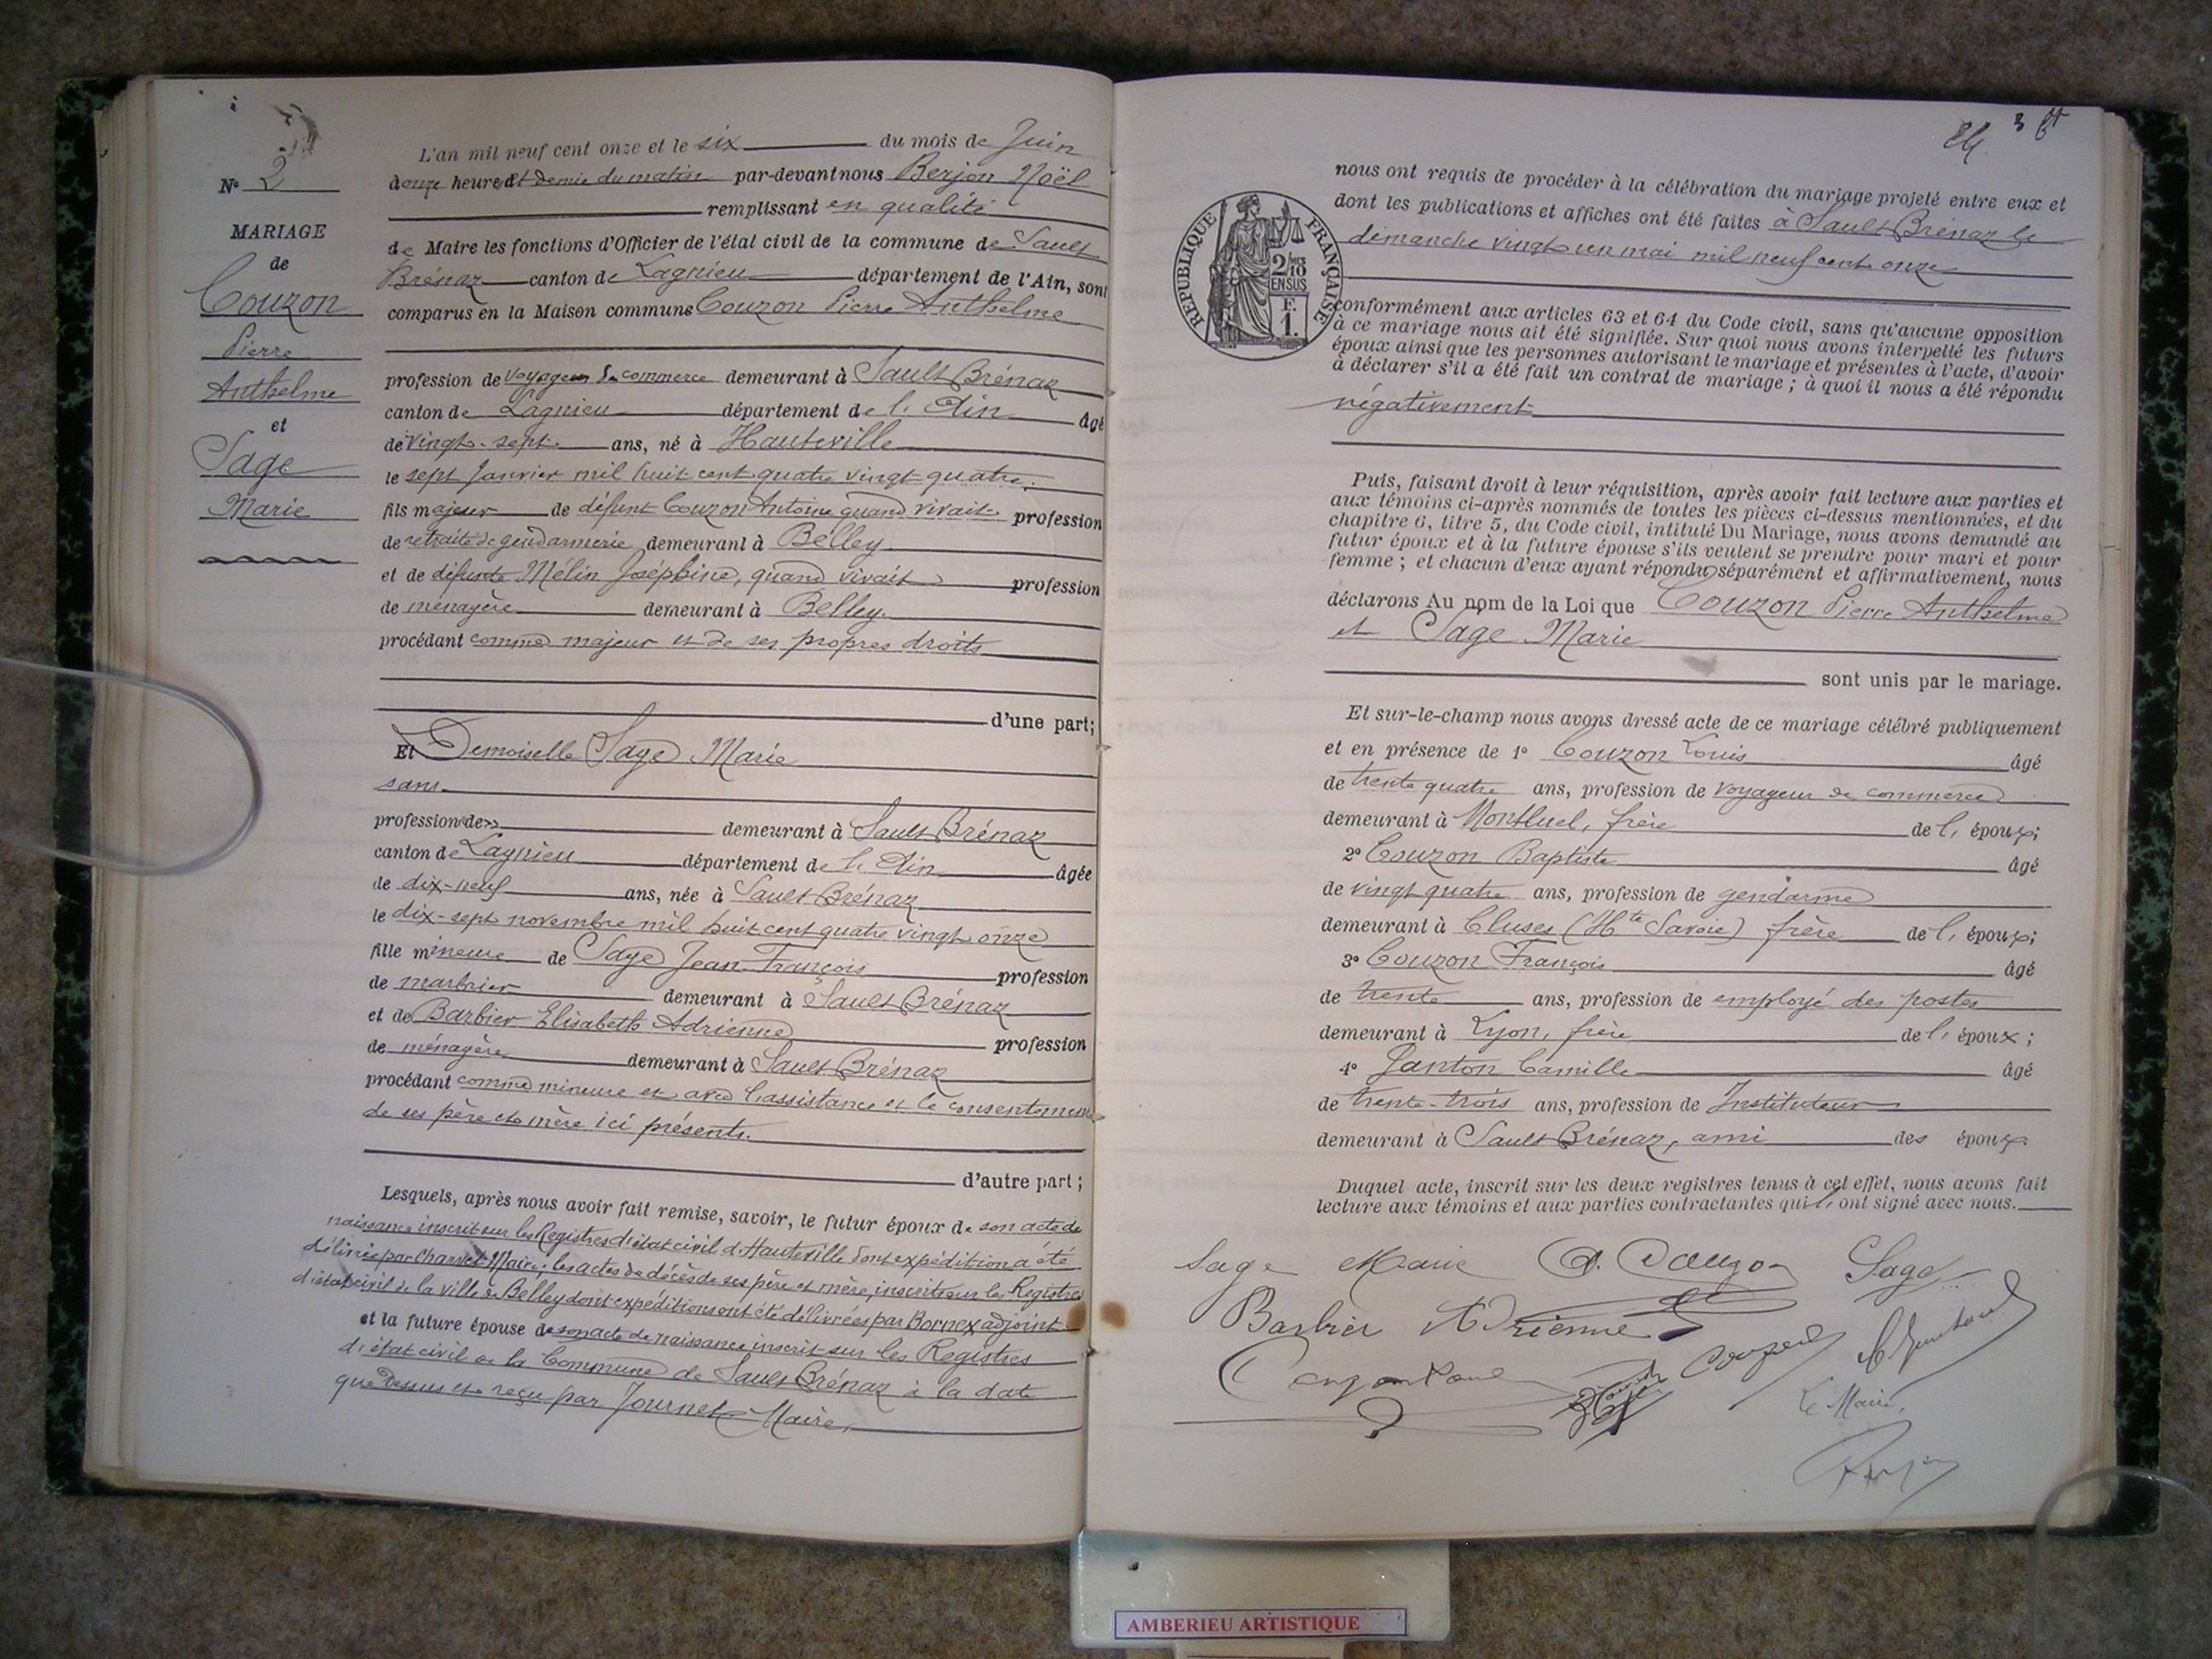 N° 2
MARIAGE
de
Couzon
Pierre
Anthelme
et
Sage
Marie
L'an mil neuf cent onze et le six du mois de Juin
heures et demie du matin par-devant nous Berjon Noël
remplissant en qualité
de Maire les fonctions d'Officier de l'état civil de la commune de Sault
Brénaz canton de Lagnieu département de l'Ain, sont
comparus en la Maison commune Couzon Pierre Anthelme
profession de voyageur de commerce demeurant à Sault Brénaz
canton de Lagnieu département de l'Ain âgé
de vingt-sept ans, né à Hauteville
le sept Janvier mil huit cent quatre vingt quatre
fils majeur de défunt Couzon Antoine quand vivait profession
de retraité de gendarmerie demeurant à Belley
et de défunte Mélin Joséphine, quand vivait profession
de ménagère demeurant à Belley.
procédant comme majeur et de ses propres droits
d'une part;
Et Demoiselle Sage Marie
sans
profession de demeurant à Sault Brénaz
canton de Lagnieu département de l'Ain âgée
de dix-neuf ans, née à Sault Brénaz
le dix-sept novembre mil huit cent quatre vingt onze
fille mineure de Sage Jean François profession
de marbrier demeurant à Sault Brénaz
et de Barbier Elisabeth Adrienne profession
de ménagère demeurant à Sault Brénaz
procédant comme mineure et avec l'assistance et le consentement
de ses père et mère ici présents.
d'autre part;
Lesquels, après nous avoir fait remise, savoir, le futur époux de son acte de
naissance inscrit sur les Registres d'état civil d'Hauteville dont expédition a été
délivrée par Charvet Maire: les actes de décès de ses père et mère, inscrits sur les Registres
d'état civil de la ville de Belley dont expéditions ont été délivrées par Bornex adjoint
et la future épouse de son acte de naissance inscrit sur les Registres
d'état civil de la Commune de Sault Brénaz à la date
que dessus et reçu par Journet Maire,
REPUBLIQUE FRANÇAISE
2/10
EN SUS
F.
1.
nous ont requis de procéder à la célébration du mariage projeté entre eux et
dont les publications et affiches ont été faites à Sault Brénaz le
dimanche vingt un mai mil neuf cent onze
conformément aux articles 63 et 64 du Code civil, sans qu'aucune opposition
à ce mariage nous ait été signifiée. Sur quoi nous avons interpellé les futurs
époux ainsi que les personnes autorisant le mariage et présentes à l'acte, d'avoir
à déclarer s'il a été fait un contrat de mariage; à quoi il nous a été répondu
négativement
Puis, faisant droit à leur réquisition, après avoir fait lecture aux parties et
aux témoins ci-après nommés de toutes les pièces ci-dessus mentionnées, et du
chapitre 6, titre 5, du Code civil, intitulé Du Mariage, nous avons demandé au
futur époux et à la future épouse s'ils veulent se prendre pour mari et pour
femme; et chacun d'eux ayant répondu séparément et affirmativement, nous
déclarons Au nom de la Loi que Couzon Pierre Anthelme
et Sage Marie
sont unis par le mariage.
Et sur-le-champ nous avons dressé acte de ce mariage célébré publiquement
et en présence de 1° Couzon Louis âgé
de trente quatre ans, profession de voyageur de commerce
demeurant à Montluel, frère de l'époux;
2° Couzon Baptiste âgé
de vingt quatre ans, profession de gendarme
demeurant à Cluses (Hte Savoie) frère de l'époux;
3° Couzon François âgé
de trente ans, profession de employé des postes
demeurant à Lyon, frère de l'époux;
4° Janton Camille âgé
de trente-trois ans, profession de Instituteur
demeurant à Sault Brénaz, ami des époux
Duquel acte, inscrit sur les deux registres tenus à cet effet, nous avons fait
lecture aux témoins et aux parties contractantes qui l'ont signé avec nous.
Sage Marie Couzon Sage
Barbier Adrienne
Couzon
Le Maire,
AMBERIEU ARTISTIQUE